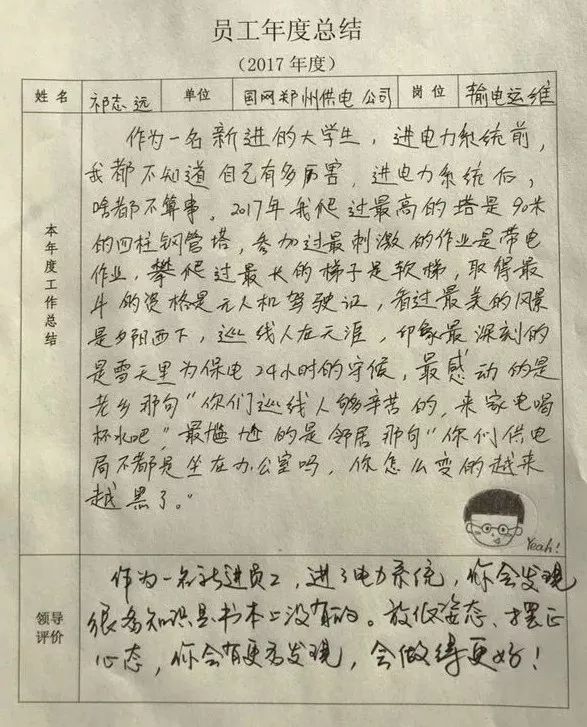 员工年度总结
（2017 年度）
姓 名 祁志远 单位 国网郑州供电公司 岗 位 输电运维
本年度工作总结
作为一名新进的大学生，进电力系统前，
我都不知道自己有多厉害，进电力系统后，
啥都不算事。2017年我爬过最高的塔是90米
的四柱钢管塔，参加过最刺激的作业是带电
作业，攀爬过最长的梯子是软梯，取得最
牛的资格是无人机驾驶证，看过最美的风景
是夕阳西下，巡线人在天涯，印象最深刻的
是雪天里为保电24小时的守候，最感动的是
老乡那句“你们巡线人够辛苦的，来家电喝
杯水吧”，最尴尬的是邻居那句“你们供电
局不都是坐在办公室吗，你怎么变的越来
越黑了。”
Yeah!
领导
评价
作为一名新进员工，进了电力系统，你会发现
很多知识是书本上没有的。放低姿态、摆正
心态，你会有更多发现，会做得更好！